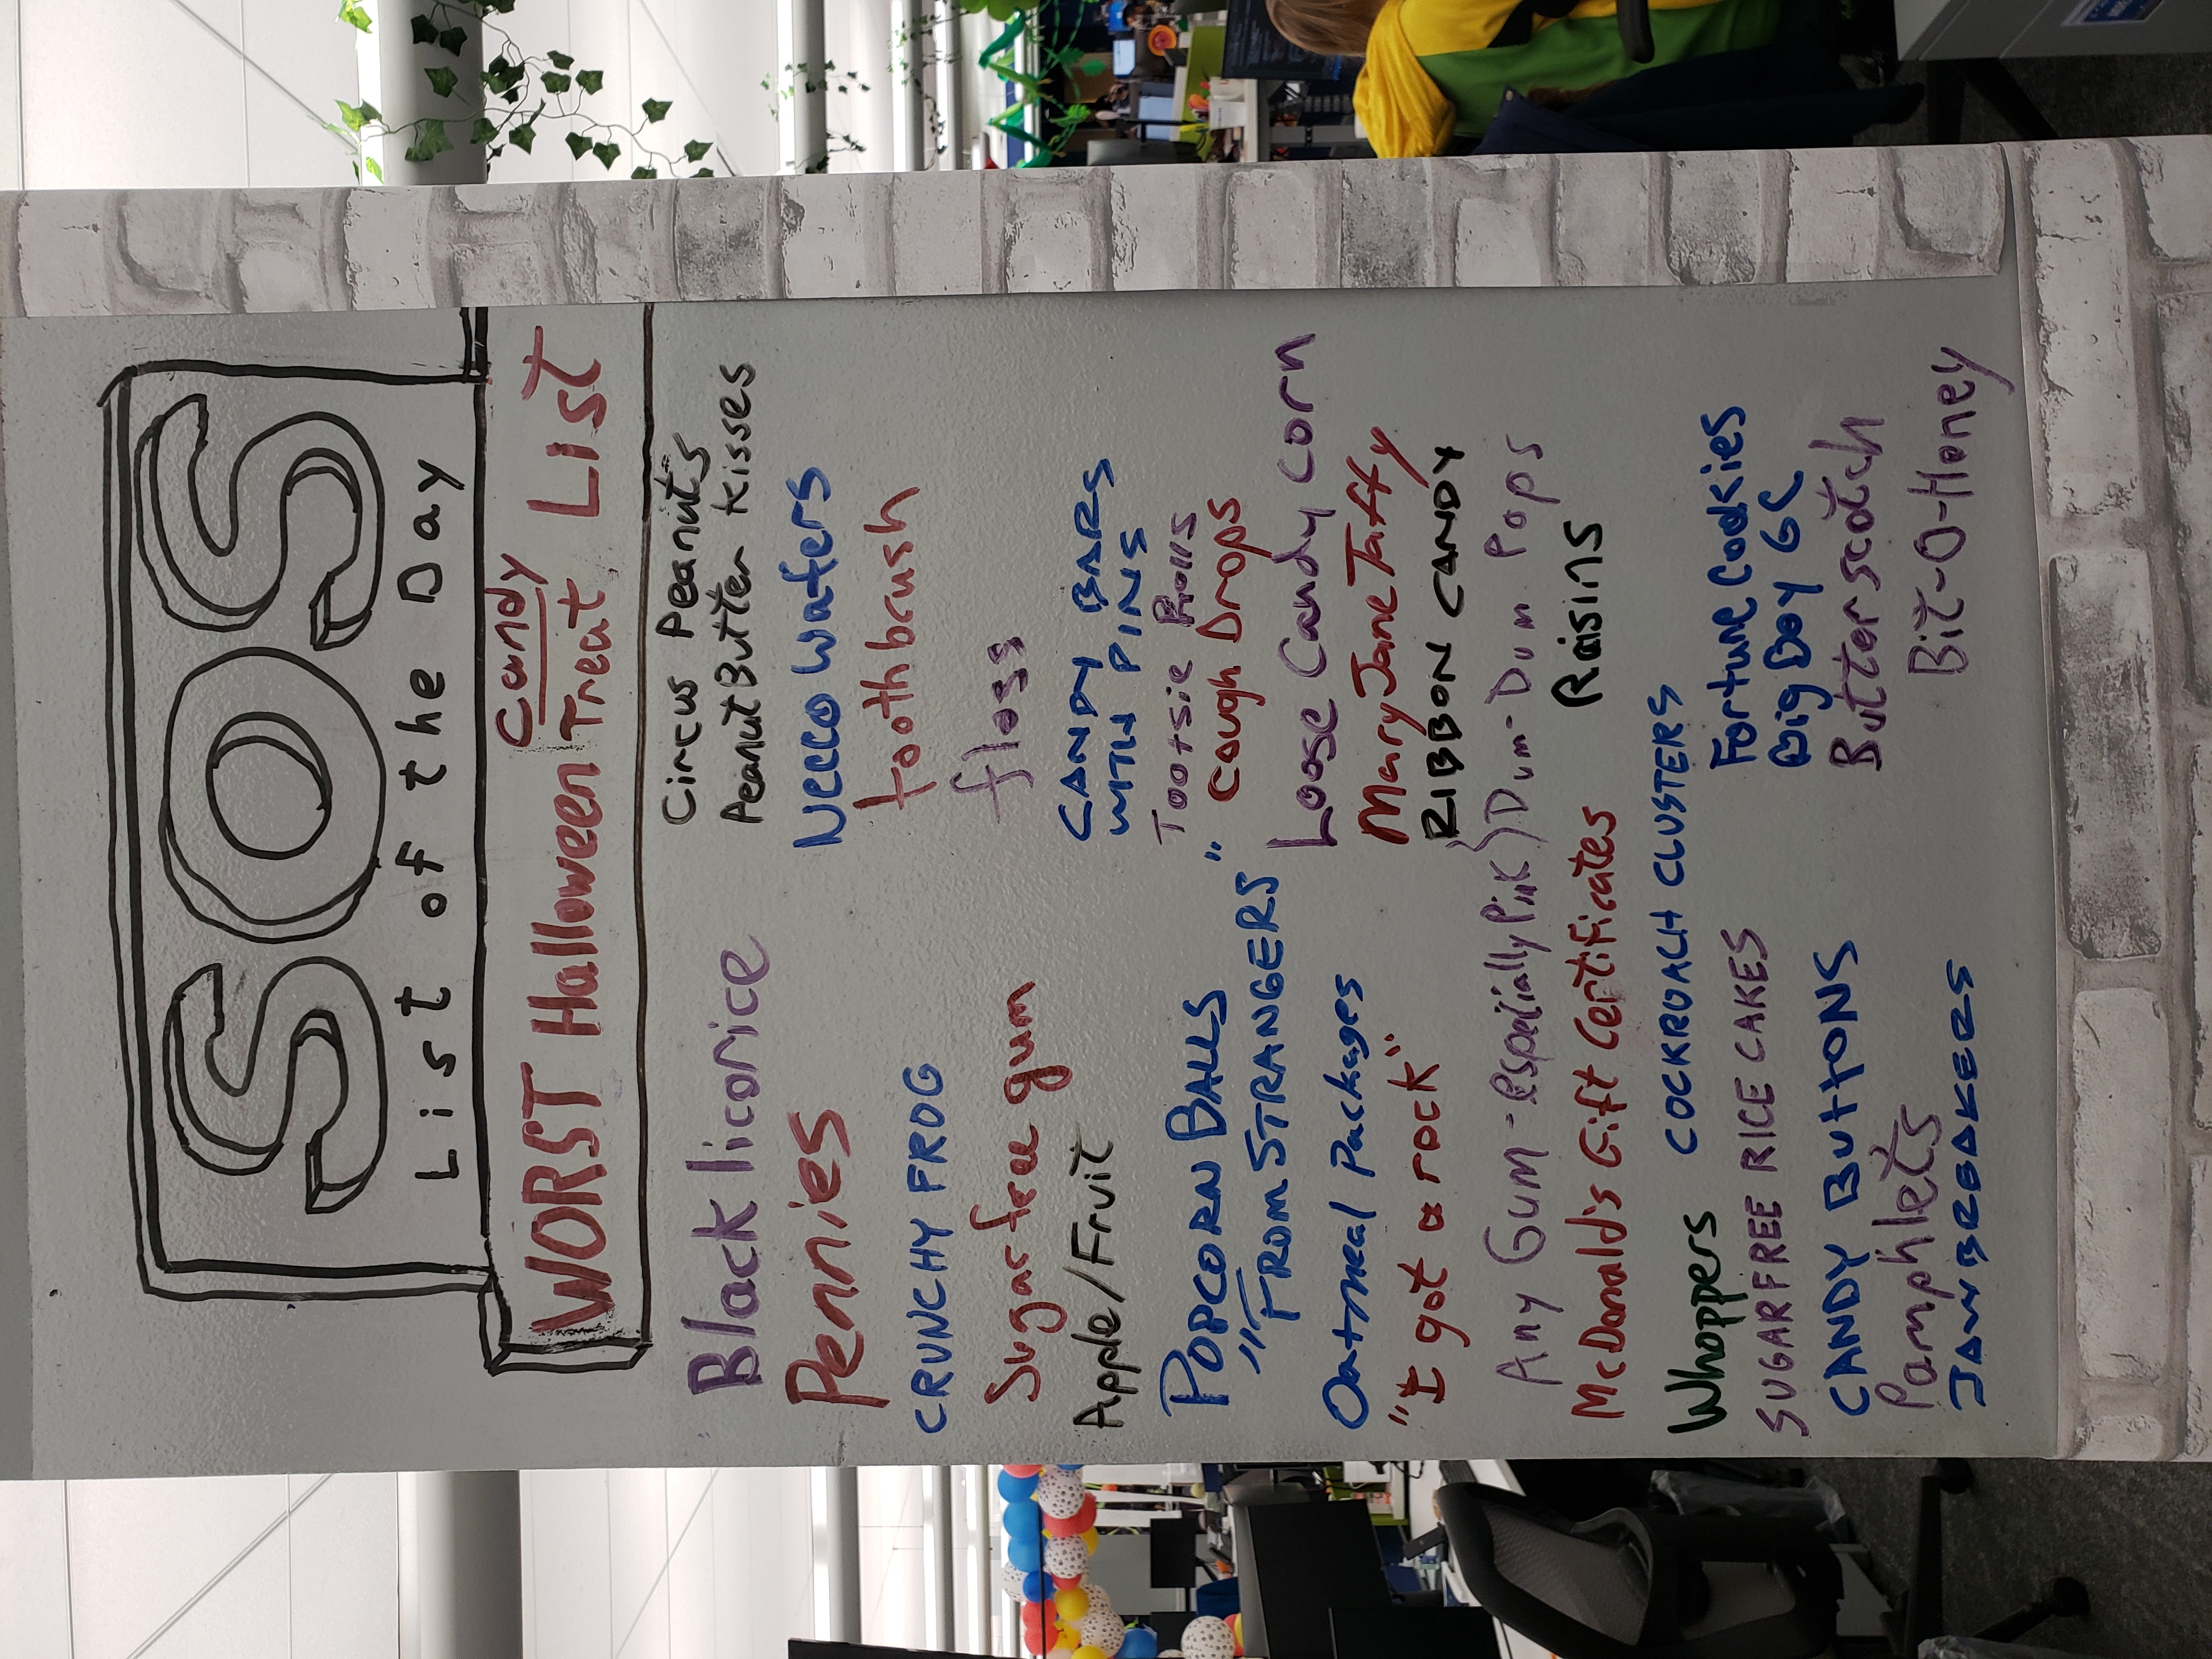 SOS
List of the Day
WORST Halloween Candy Treat List
Black licorice
Pennies
CRUNCHY FROG
Sugar free gum
Apple/Fruit
POPCORN BALLS
"FROM STRANGERS"
Oatmeal Packages
"I got a rock"
Any Gum - especially Pink
McDonald's Gift Certificates
Whoppers
SUGAR FREE RICE CAKES
CANDY BUTTONS
Pamphlets
JAWBREAKERS
Circus Peanuts
Peanut Butter Kisses
Necco Wafers
toothbrush
floss
CANDY BARS
WITH PINS
Tootsie Rolls
Cough Drops
Loose Candy corn
Mary Jane Taffy
RIBBON CANDY
Dum-Dum Pops
Raisins
COCKROACH CLUSTERS
Fortune Cookies
Big Boy GC
Butterscotch
Bit-O-Honey